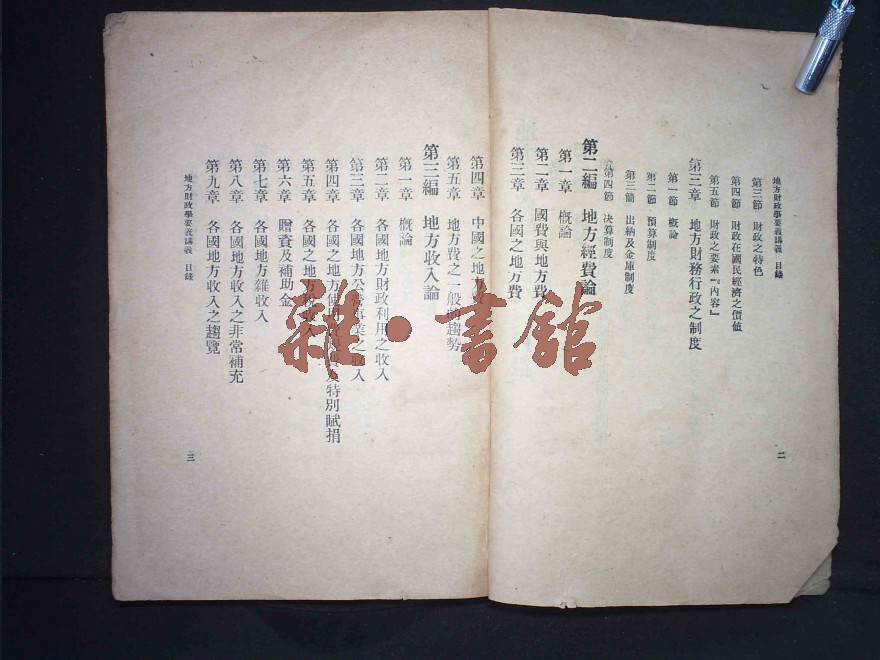 地方財政學要義講義　目錄
第三節　財政之特色
第四節　財政在國民經濟之價値
第五節　財政之要素『內容』
第二章　地方財務行政之制度
第一節　概論
第二節　預算制度
第三節　出納及金庫制度
第四節　決算制度
第二編　地方經費論
第一章　概論
第二章　國費與地方費
第三章　各國之地方費
二
第四章　中國之地方
第五章　地方費之一般的趨勢
第三編　地方收入論
第一章　概論
第二章　各國地方財政利用之收入
第三章　各國地方公營事業之收入
第四章　各國之地方使用 特別賦捐
第五章　各國之地方稅收入
第六章　贈資及補助金
第七章　各國地方雜收入
第八章　各國地方收入之非常補充
第九章　各國地方收入之趨覽
地方財政學要義講義　目錄
三
雜·書館